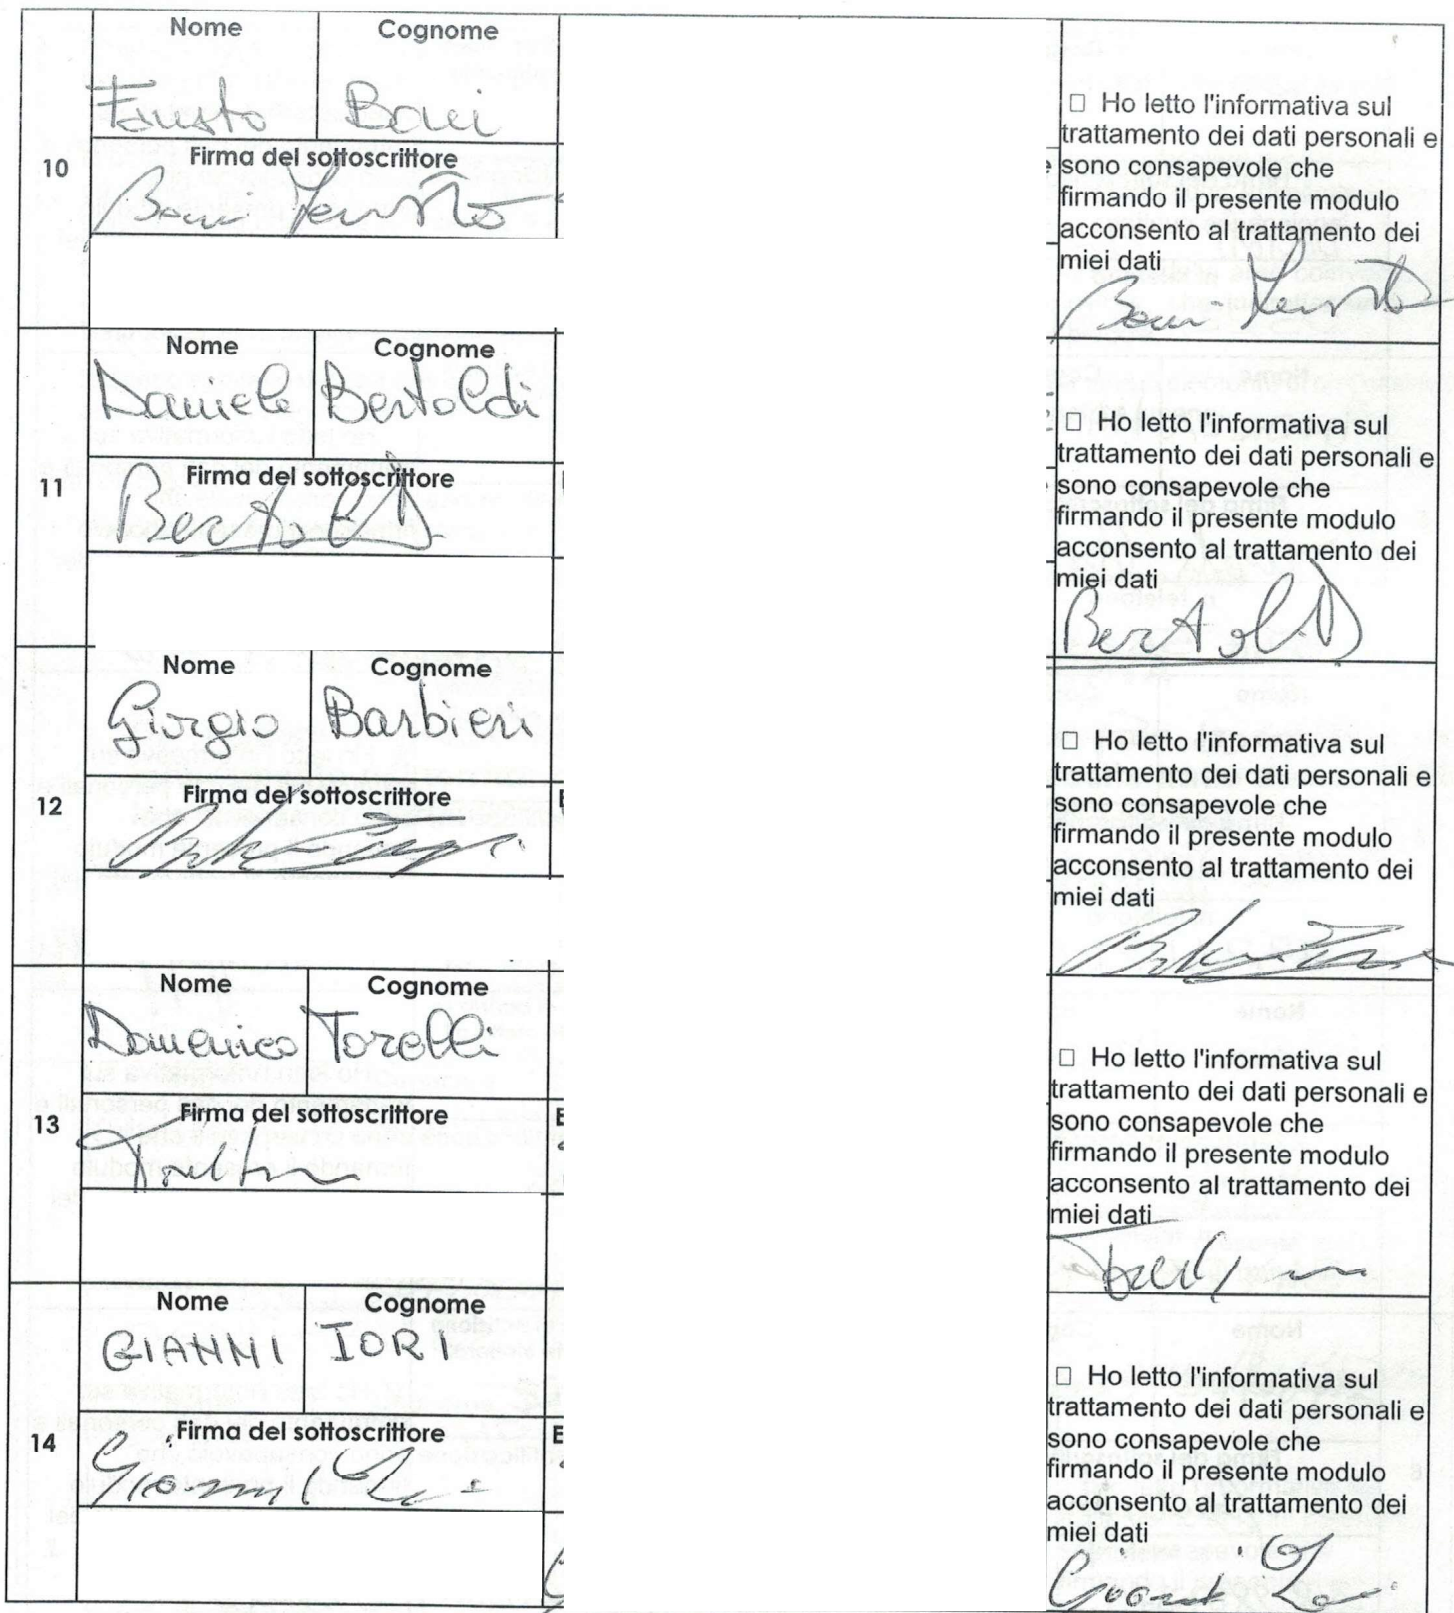 Nome Cognome
Fausto Boni
10
Firma del sottoscrittore
Boni Fausto
□ Ho letto l'informativa sul
trattamento dei dati personali e
sono consapevole che
firmando il presente modulo
acconsento al trattamento dei
miei dati
Boni Fausto
Nome Cognome
Daniele Bertoldi
11
Firma del sottoscrittore
Bertoldi
□ Ho letto l'informativa sul
trattamento dei dati personali e
sono consapevole che
firmando il presente modulo
acconsento al trattamento dei
miei dati
Bertoldi
Nome Cognome
Giorgio Barbieri
12
Firma del sottoscrittore
□ Ho letto l'informativa sul
trattamento dei dati personali e
sono consapevole che
firmando il presente modulo
acconsento al trattamento dei
miei dati
Nome Cognome
Domenico Torelli
13
Firma del sottoscrittore
□ Ho letto l'informativa sul
trattamento dei dati personali e
sono consapevole che
firmando il presente modulo
acconsento al trattamento dei
miei dati
Nome Cognome
GIANNI IORI
14
Firma del sottoscrittore
Gianni Iori
□ Ho letto l'informativa sul
trattamento dei dati personali e
sono consapevole che
firmando il presente modulo
acconsento al trattamento dei
miei dati
Gianni Iori